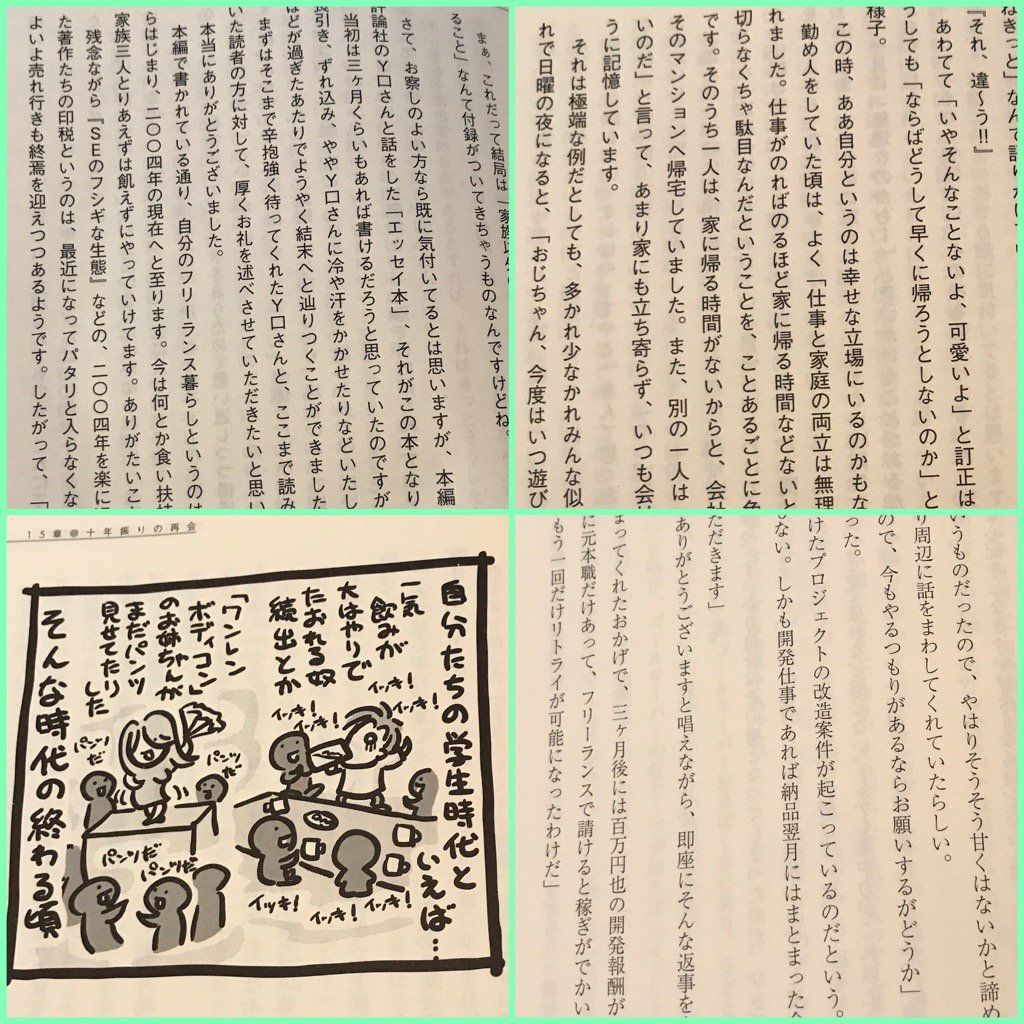 まぁ、これだって結局は「家族
ること」なんて付録がついてきちゃうものなんですけどね。
さて、お察しのよい方なら既に気付いてるとは思いますが、本編
評論社のY口さんと話をした「エッセイ本」、それがこの本となり
当初は三ヶ月くらいもあれば書けるだろうと思っていたのですが
長引き、ずれ込み、ややY口さんに冷や汗をかかせたりなどいたし
ほどが過ぎたあたりでようやく結末へと辿りつくことができました
まずはそこまで辛抱強く待ってくれたY口さんと、ここまで読み
いた読者の方に対して、厚くお礼を述べさせていただきたいと思い
本当にありがとうございました。
本編で書かれている通り、自分のフリーランス暮らしというのは
らはじまり、二〇〇四年の現在へと至ります。今は何とか食い扶
家族三人とりあえずは飢えずにやっていけてます。ありがたいこ
残念ながら『SEのフシギな生態』などの、二〇〇四年を楽に
た著作たちの印税というのは、最近になってパタリと入らなくな
よいよ売れ行きも終焉を迎えつつあるようです。したがって、「
ねきっと」なんて
『それ、違〜う!!』
あわてて「いやそんなことないよ、可愛いよ」と訂正は
うしても「ならばどうして早くに帰ろうとしないのか」と
様子。
この時、ああ自分というのは幸せな立場にいるのかもな
勤め人をしていた頃は、よく「仕事と家庭の両立は無理
れました。仕事がのればのるほど家に帰る時間などないと
切らなくちゃ駄目なんだということを、ことあるごとに
です。そのうち一人は、家に帰る時間がないからと、会社
そのマンションへ帰宅していました。また、別の一人は
いのだ」と言って、あまり家にも立ち寄らず、いつも会
うに記憶しています。
それは極端な例だとしても、多かれ少なかれみんな似
れで日曜の夜になると、「おじちゃん、今度はいつ遊び
15章●十年振りの再会
自分たちの学生時代と
いえば…
一気
飲みが
大はやりで
たおれる奴
続出とか
「ワンレン
ボディコン」
のお姉ちゃんが
まだパンツ
見せてたり
した
そんな時代の終わる頃
イッキ!
イッキ!
イッキ!
イッキ!
イッキ!
イッキ!
イッキ!
イッキ!
パンツだ
パンツだ
パンツだ
パンツだ
いうものだったので、やはりそうそう甘くはないかと諦め
り周辺に話をまわしてくれていたらしい。
ので、今もやるつもりがあるならお願いするがどうか」
った。
けたプロジェクトの改造案件が起こっているのだという。
しない。しかも開発仕事であれば納品翌月にはまとまった
ただきます」
ありがとうございますと唱えながら、即座にそんな返事を
まってくれたおかげで、三ヶ月後には百万円也の開発報酬が
に元本職だけあって、フリーランスで請けると稼ぎがでかい
もう一回だけリトライが可能になったわけだ」